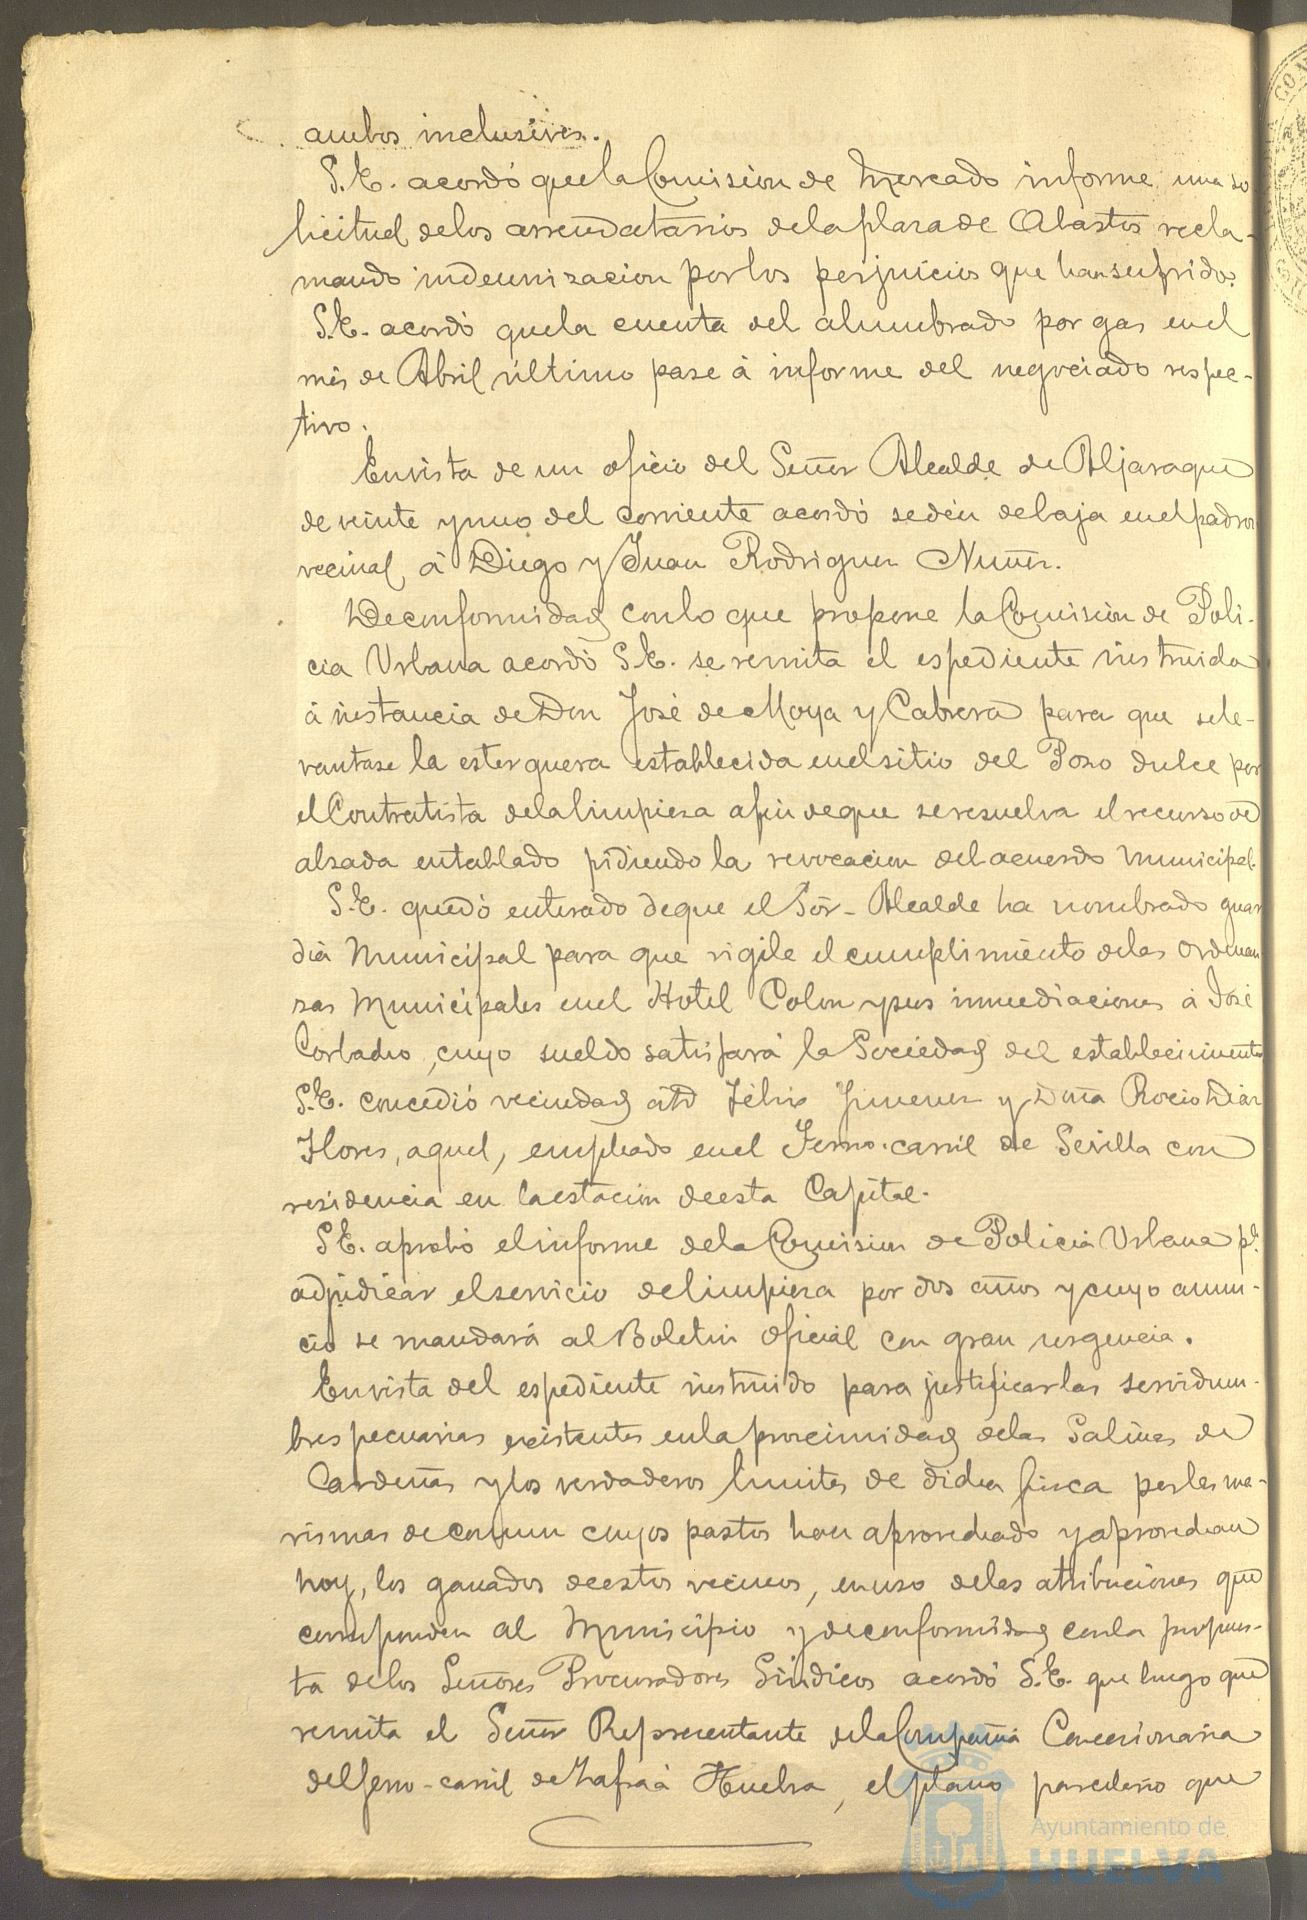 ambos inclusives.
S.E. acordó que la Comision de Mercado informe una so
licitud de los arrendatarios de la plaza de Abastos recla-
mando indemnizacion por los perjuicios que han sufrido.
S.E. acordó que la cuenta del alumbrado por gas en el
mes de Abril último pase á informe del negociado respec-
tivo.
En vista de un oficio del Señor Alcalde de Aljaraque
de veinte y uno del corriente acordó se dén de baja en el padron
vecinal á Diego y Juan Rodriguez Nuñez.
De conformidad con lo que propone la Comision de Poli-
cia Urbana acordó S.E. se remita el espediente instruido
á instancia de Don José de Moya y Cabrera para que se le-
vantase la esterquera establecida en el sitio del Pozo dulce por
el Contratista de la limpieza a fin de que se resuelva el recurso de
alzada entablado pidiendo la revocacion del acuerdo municipal.
S.E. quedó enterado de que el Sõr. Alcalde ha nombrado guar
dia Municipal para que vigile el cumplimiento de las Ordenan
zas Municipales en el Hotel Colon y sus inmediaciones á José
Corbacho, cuyo sueldo satisfará la Sociedad del establecimiento
S.E. concedió vecindad á D Félix Jimenez y Doña Rocio Diaz
Flores, aquel, empleado en el Ferro-carril de Sevilla con
residencia en la estacion de esta Capital.
S.E. aprobó el informe de la Comision de Policia Urbana pª
adjudicar el servicio de limpieza por dos años y cuyo anun-
cio se mandará al Boletin Oficial con gran urgencia.
En vista del espediente instruido para justificar las servidum-
bres pecuarias existentes en la proximidad de las Salinas de
Cardeñas y los verdaderos limites de dicha finca por las ma-
rismas de comun cuyos pastos han aprovechado y aprovechan
hoy, los ganados de estos vecinos, en uso de las atribuciones que
corresponden al Municipio y de conformidad con la propues-
ta de los Señores Procuradores Sindicos acordó S.E. que luego que
remita el Señor Representante de la Compañia Concesionaria
del ferro-carril de Zafra á Huelva, el plano parcelario que
Ayuntamiento de
HUELVA